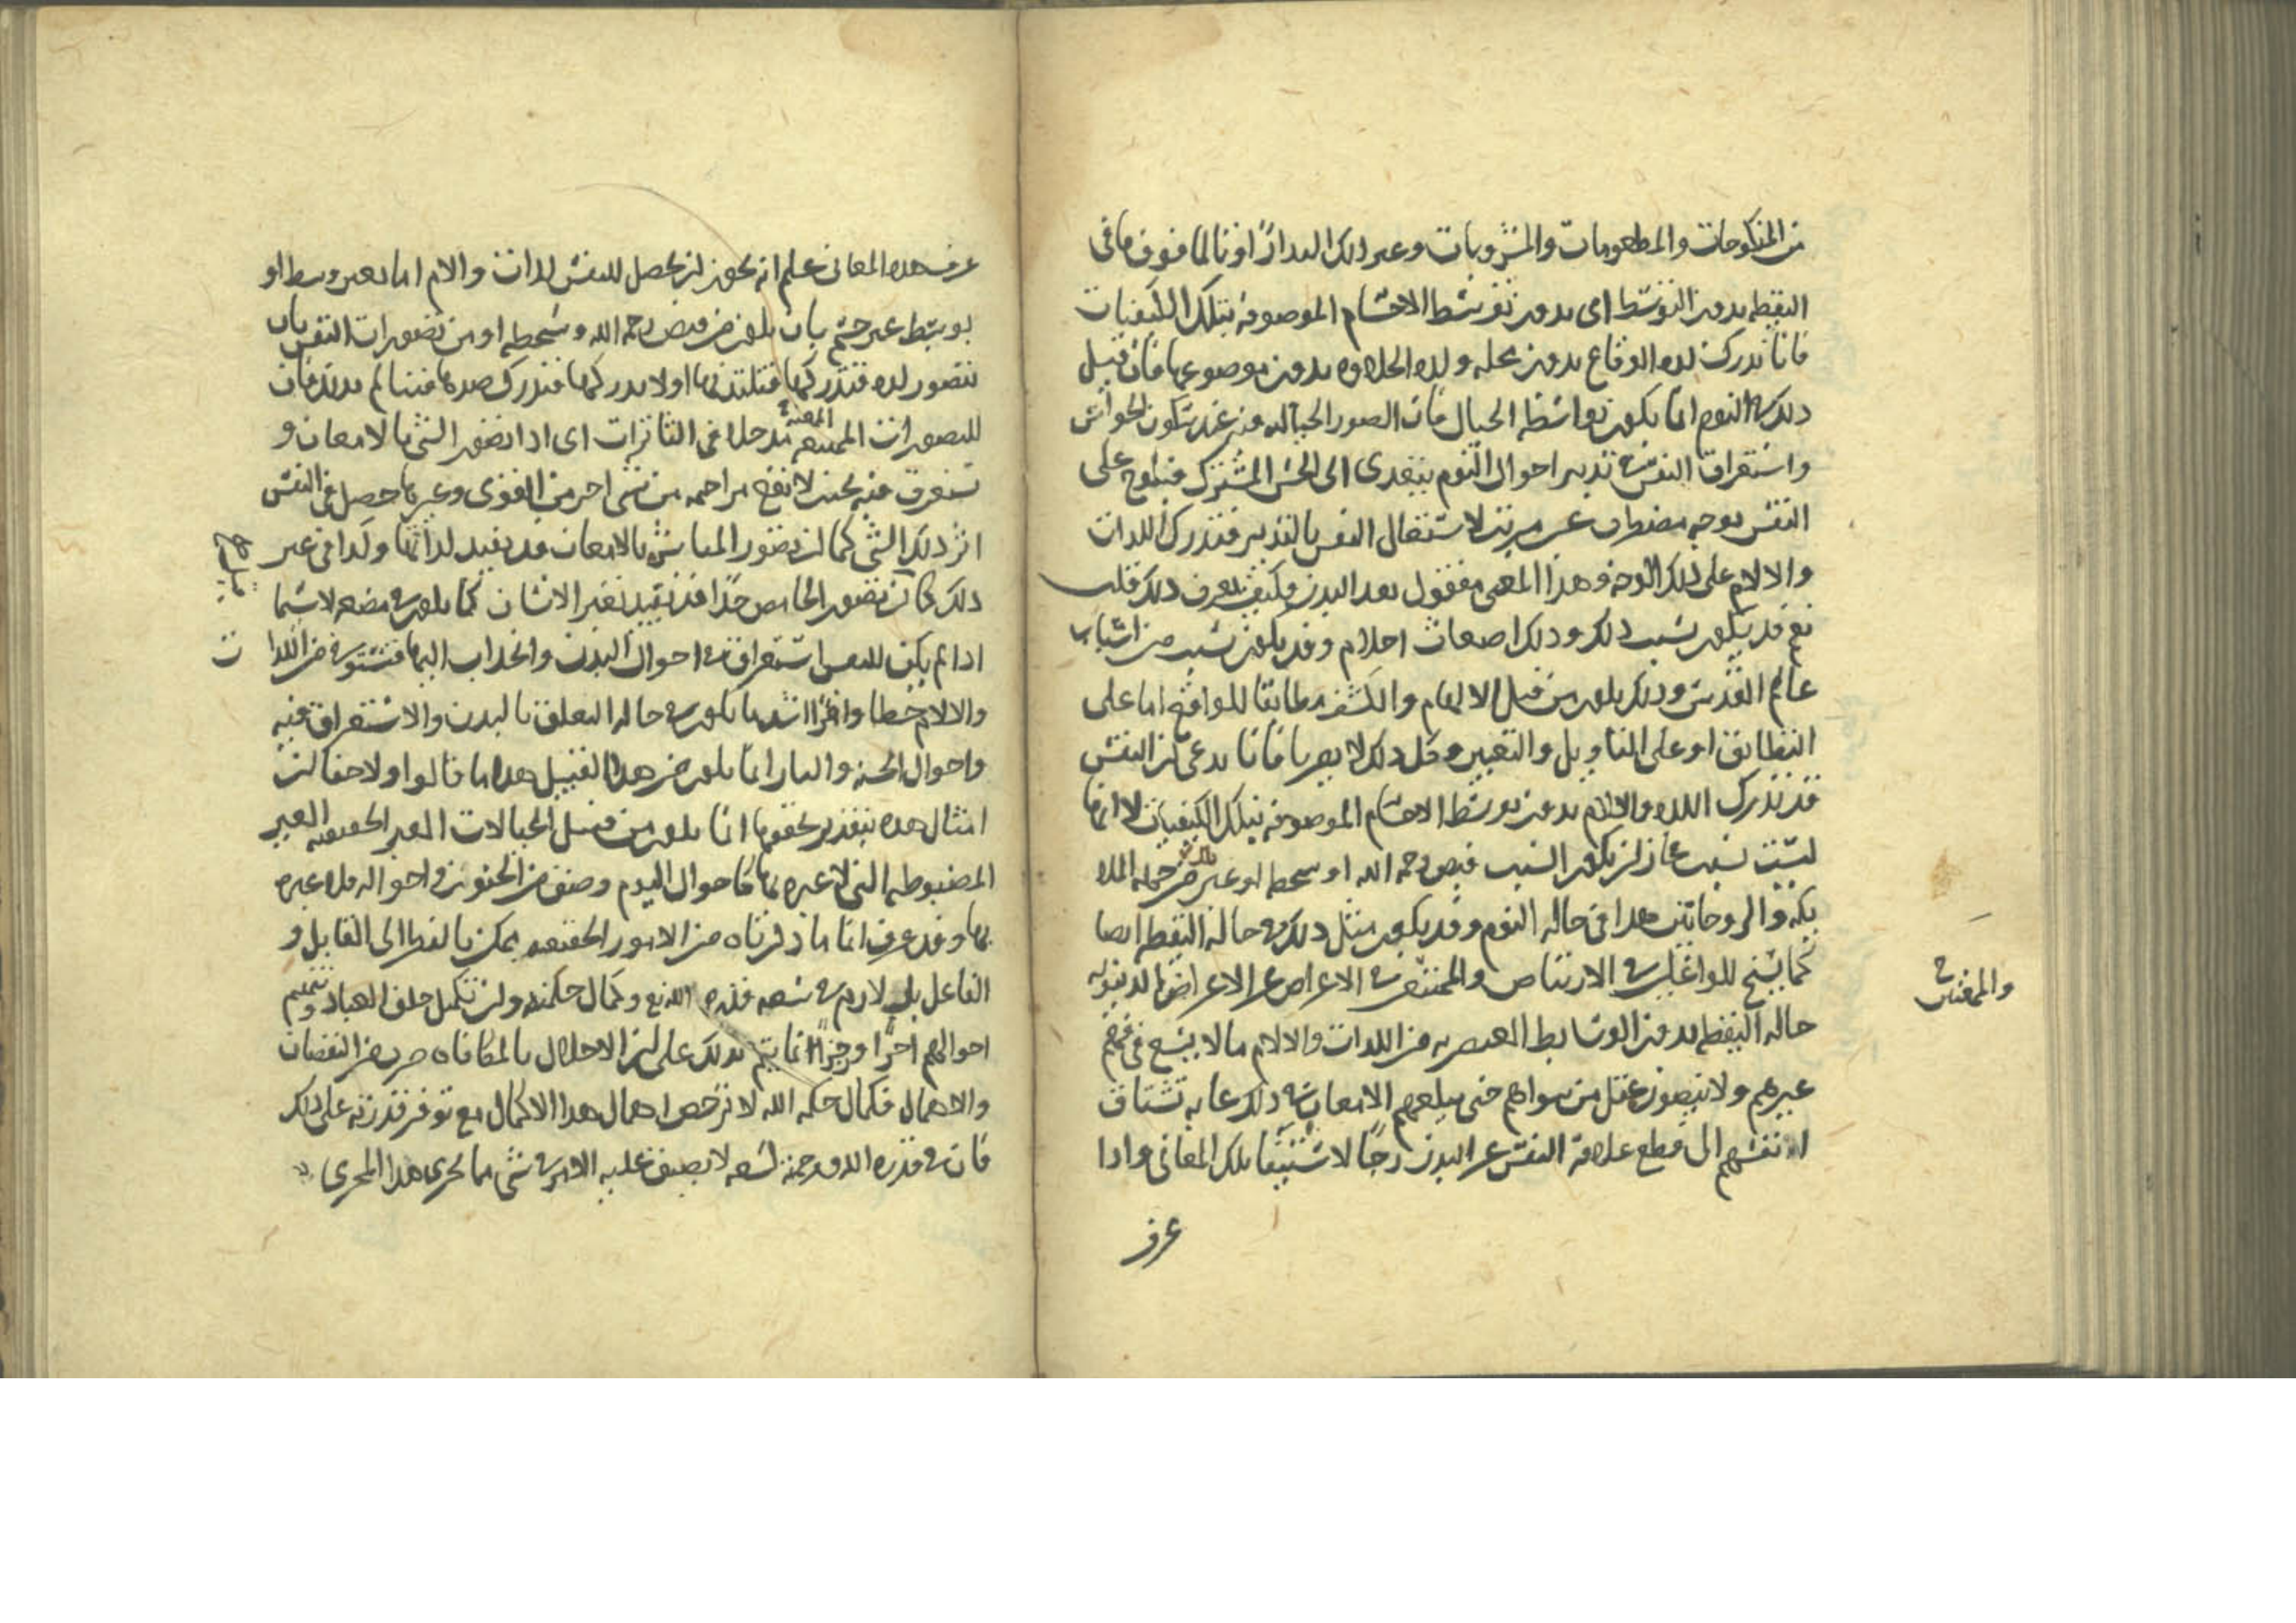 من المنكوحات والمطعومات والمشروبات وغير ذلك التذاذًا او تألما فوق ما في
اليقظه بدون التوسّط اى بدون توسّط الاجسام الموصوفه بتلك الكيفيات
فانا ندرك لذه الوقاع بدون محله ولذه الحلاوه بدون موضوعها فان قيل
ذلك في النوم انما يكون بواسطه الخيال فان الصور الخياليه عند سكون الحواس
واستغراق النفس في تدبير احوال النوم يتعدى الى الحس المشترك فيلوح على
النفس بوجه مضطرب غير مرتب لاشتغال النفس بالتدبير فتدرك اللذات
والالام على ذلك الوجه وهذا المعنى مفقود بعد البدن فكيف يعرف ذلك قلت
نعم قد يكون بسبب ذلك وذلك اضغاث احلام وقد يكون بسبب من اسباب
عالم القدس وذلك يكون من قبيل الالهام والكشف مطابقا للواقع اما على
التطابق او على التاويل والتعبير وكل ذلك لا يضرنا فانا ندعى ان النفس
قد تدرك اللذه والالام بدون توسّط الاجسام الموصوفه بتلك الكيفيات لا انها
ليست بسبب فجاز ان يكون السبب فيض رحمه الله او سخطه او غير ذلك من جمله الملا
يكه والروحانيين هذا في حاله النوم وقد يكون مثل ذلك في حاله اليقظه ايضا
كما يسنح للواغلين في الارتياض والمنغمسين في الاعراض عن الاعراض الدنيويه
والمغمسين
حاله اليقظه بدون الوسايط العنصريه من اللذات والالام ما لا يسع في فهم
غيرهم ولا يتصور عقل من سواهم حتى يبلغهم الامعان في ذلك غايه تشتاق
انفسهم الى قطع علاقه النفس عن البدن رجآ لاستيفا تلك المعانى واذا
عرف
عرف هذه المعانى علم انه يجوز ان يحصل للنفس لذات والام اما بغير وسط او
بوسط غير جسم بان يكون من فيض رحمه الله وسخطه او من تصورات النفس بان
تتصور لذه فتدركها فتلتذ بها او لا يدركها فتدرك ضدها فتتالم بذلك فان
للتصورات الممتعه المعنيه مدخلا في التاثرات اى اذا تصور الشئ بالامعان و
تستغرق فيه بحيث لا تقع مزاحمه من شى اخر من القوى وغيرها حصل في النفس
اثر ذلك الشئ كما ان تصور المباشره بالامعان قد يفيد لذاتها وكذا في غير
ذلك كما ان تصور الحامض جدًا قد يفيد تغير الاسنان كما يكون في مضغه لاسيما
اذا لم يكن للنفس استغراق في احوال البدن وانجذاب اليها فتستوفى من اللذا
ت
والالام حظا وافرًا اشد ما يكون في حاله التعلق بالبدن والاستغراق فيه
واحوال الجنه والنار انما يكون من هذا القبيل هذا ما قالوا ولا خفا ان
امثال هذه بتقدير تحققها انما يكون من قبيل الخيالات الغير الحقيقيه الغير
المضبوطه التى لا عبره بها كاحوال النوم وصنف من الجنون واحواله فلا عبره
بها وقد عرف انما ما ذكرناه من الامور الحقيقيه يمكن بالنظر الى القابل و
الفاعل بل لازم في سعه قدره الله تع وكمال حكمته وان تكميل خلق العباد وتتميم
احوالهم اجرًا وجزاءً انما يتم بذلك على ان الاخلال بالمكافاه ضرب من النقصان
والاهمال فكمال حكمه الله لا ترخص اهمال هذا الاكمال مع توفر قدرته على ذلك
فان في قدره الله ورحمته لسعه لا يضيق عليه الامر في شى مما يجرى هذا المجرى